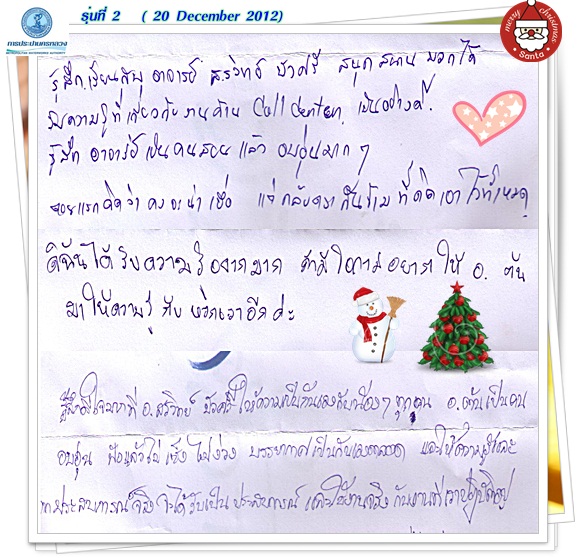 รุ่นที่ 2 ( 20 December 2012)
การประปานครหลวง
merry christmas
Santa
รู้สึกเรียนกับ อาจารย์ สุรวิทย์ บัวศรี สนุกสนาน มากได้
รับความรู้ที่เกี่ยวกับงานด้าน Call Center เป็นอย่างดี.
รู้สึก อาจารย์เป็นคนสอน แล้ว อบอุ่นมาก ๆ
ตอนแรกคิดว่า คงจะน่าเบื่อ แต่ กลับตรงกันข้าม ที่คิดเอาไว้ทั้งหมด
ดิฉันได้รับความรู้มากมาก ถ้ามีโอกาสอยากให้ อ. ต้น
มาให้ความรู้กับ พวกเราอีกค่ะ
รู้สึกดีใจมากที่ อ.สุรวิทย์ บัวศรี ให้ความเป็นกันเองกับน้องๆ ทุกคน อ.ต้นเป็นคน
อบอุ่น ฟังแล้วไม่เซ็ง ไม่ง่วง บรรยากาศเป็นกันเองตลอด และให้ความรู้และ
ประสบการณ์จริง จะได้รับเป็นประสบการณ์ และใช้งานจริง กับงานที่เราปฏิบัติอยู่